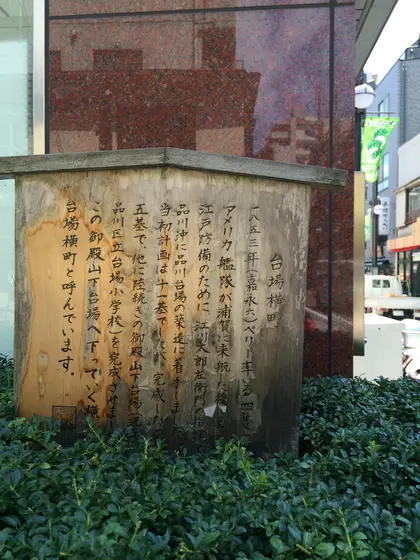 台場横町
一八五三年(嘉永六)ペリー率いる四隻
アメリカ艦隊が浦賀に来航した後
江戸防備のために、江川太郎左衛門指揮
品川沖に品川台場の築造に着手しまし
当初計画は十一基でしたが、完成した
五基で、他に陸続きの御殿山下台場(現
品川区立台場小学校)を完成させま
この御殿山下台場へ下っていく横
台場横町と呼んでいます。